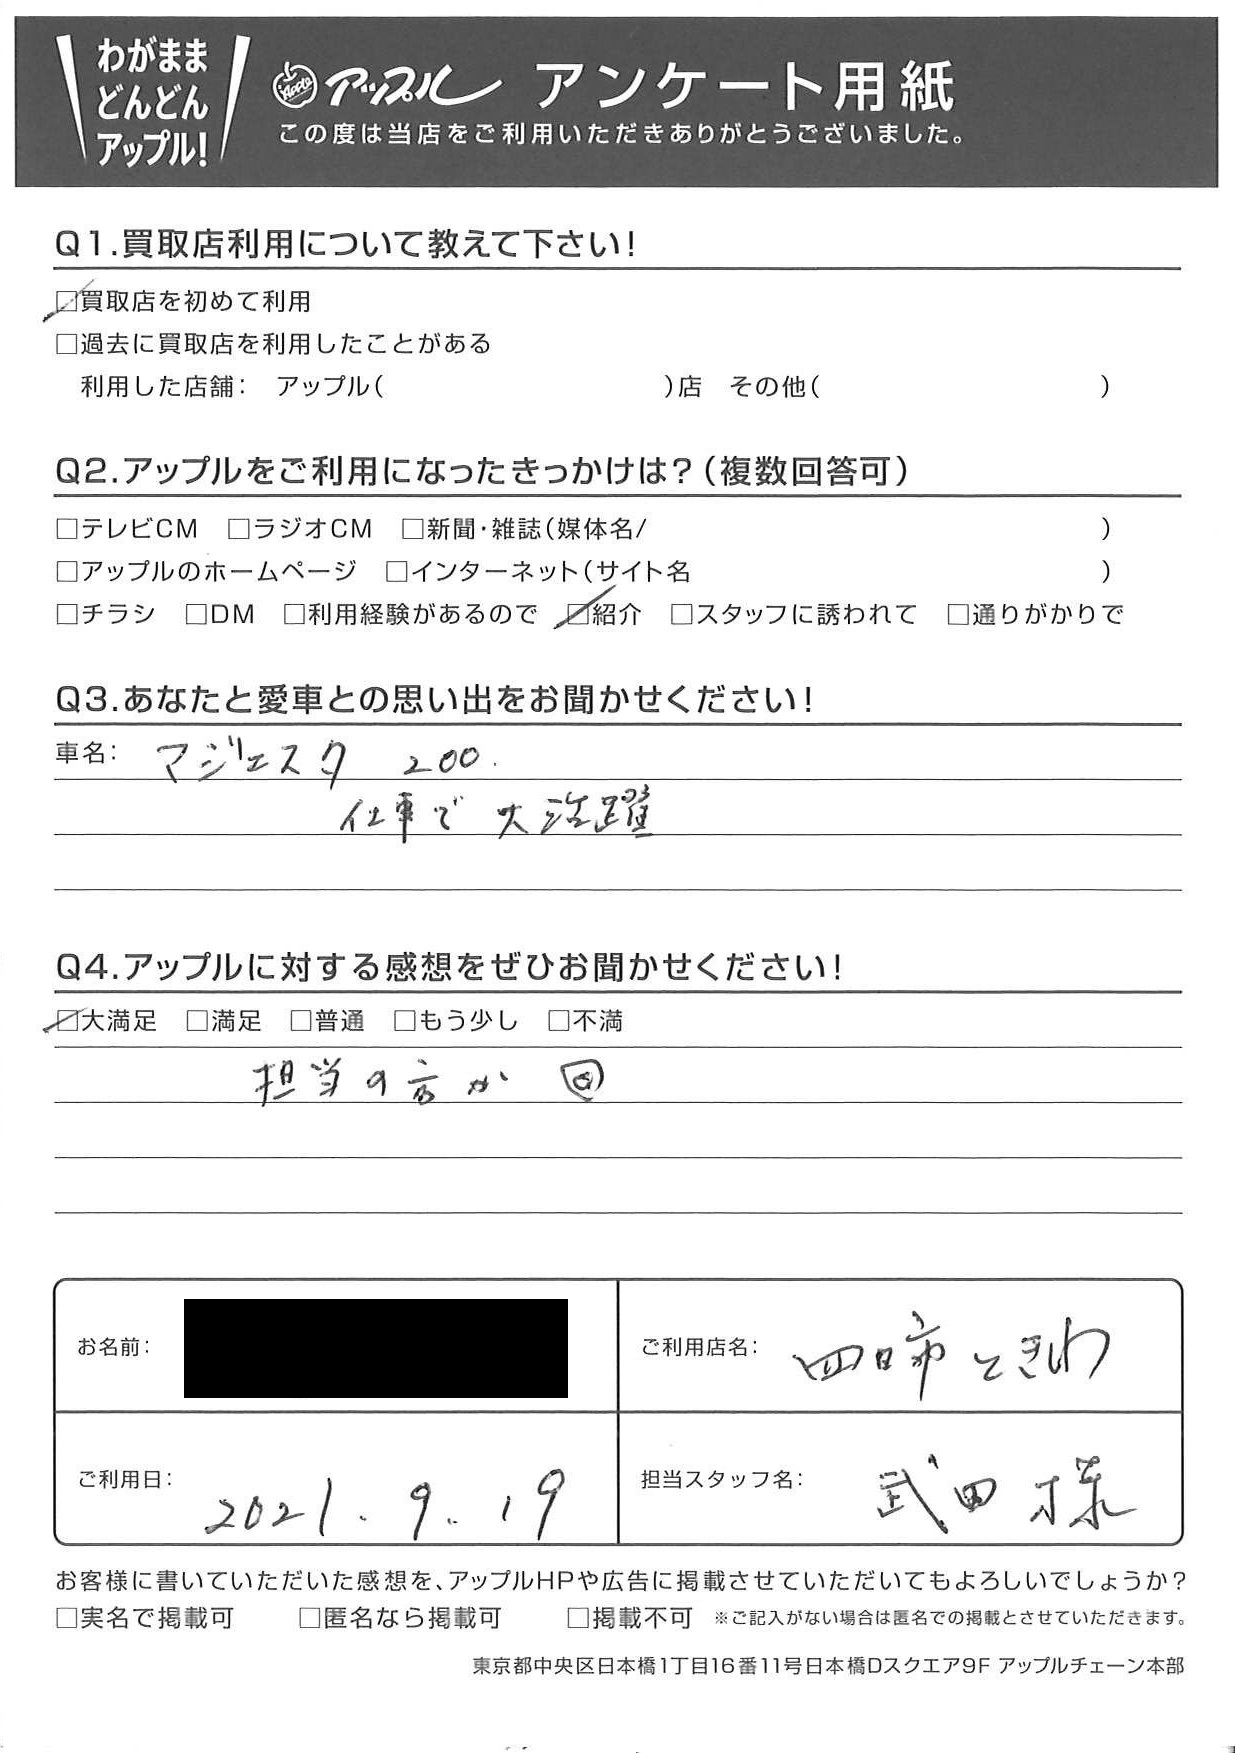 わがまま
どんどん
アップル!
Apple アップル アンケート用紙
この度は当店をご利用いただきありがとうございました。
Q1.買取店利用について教えて下さい!
☑買取店を初めて利用
□過去に買取店を利用したことがある
利用した店舗: アップル( )店 その他( )
Q2.アップルをご利用になったきっかけは?(複数回答可)
□テレビCM □ラジオCM □新聞・雑誌(媒体名/ )
□アップルのホームページ □インターネット(サイト名 )
□チラシ □DM □利用経験があるので ☑紹介 □スタッフに誘われて □通りがかりで
Q3.あなたと愛車との思い出をお聞かせください!
車名: マジェスタ 200.
仕事で大活躍
Q4.アップルに対する感想をぜひお聞かせください!
☑大満足 □満足 □普通 □もう少し □不満
担当の方が
お名前:
ご利用店名: 四日市ときわ
ご利用日: 2021. 9. 19
担当スタッフ名: 武田様
お客様に書いていただいた感想を、アップルHPや広告に掲載させていただいてもよろしいでしょうか?
□実名で掲載可 □匿名なら掲載可 □掲載不可 ※ご記入がない場合は匿名での掲載とさせていただきます。
東京都中央区日本橋1丁目16番11号日本橋Dスクエア9F アップルチェーン本部